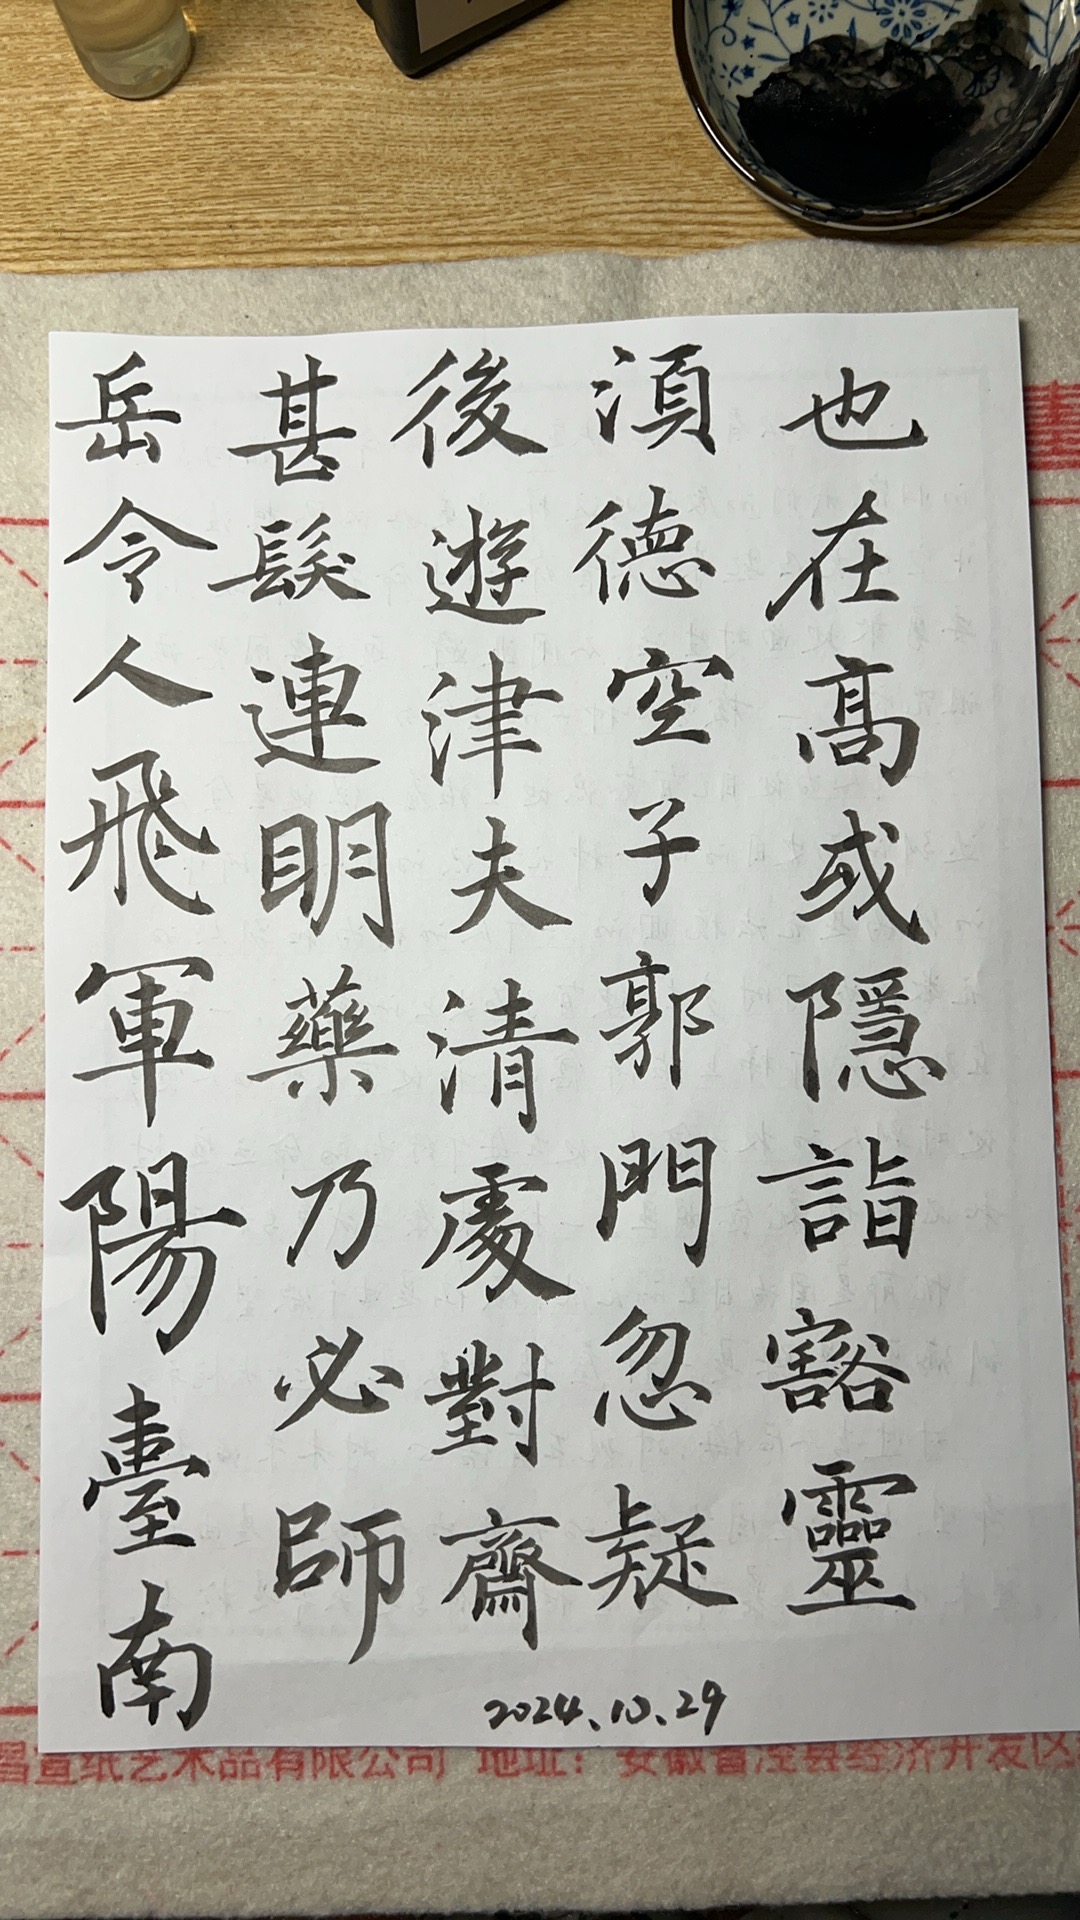 也在高或隱詣豁靈
須德空子郭門忽疑
後遊津夫清處對齋
甚髮連明藥乃必師
岳令人飛軍陽臺南
2024.10.29
昌宣纸艺术品有限公司 地址：安徽省泾县经济开发区